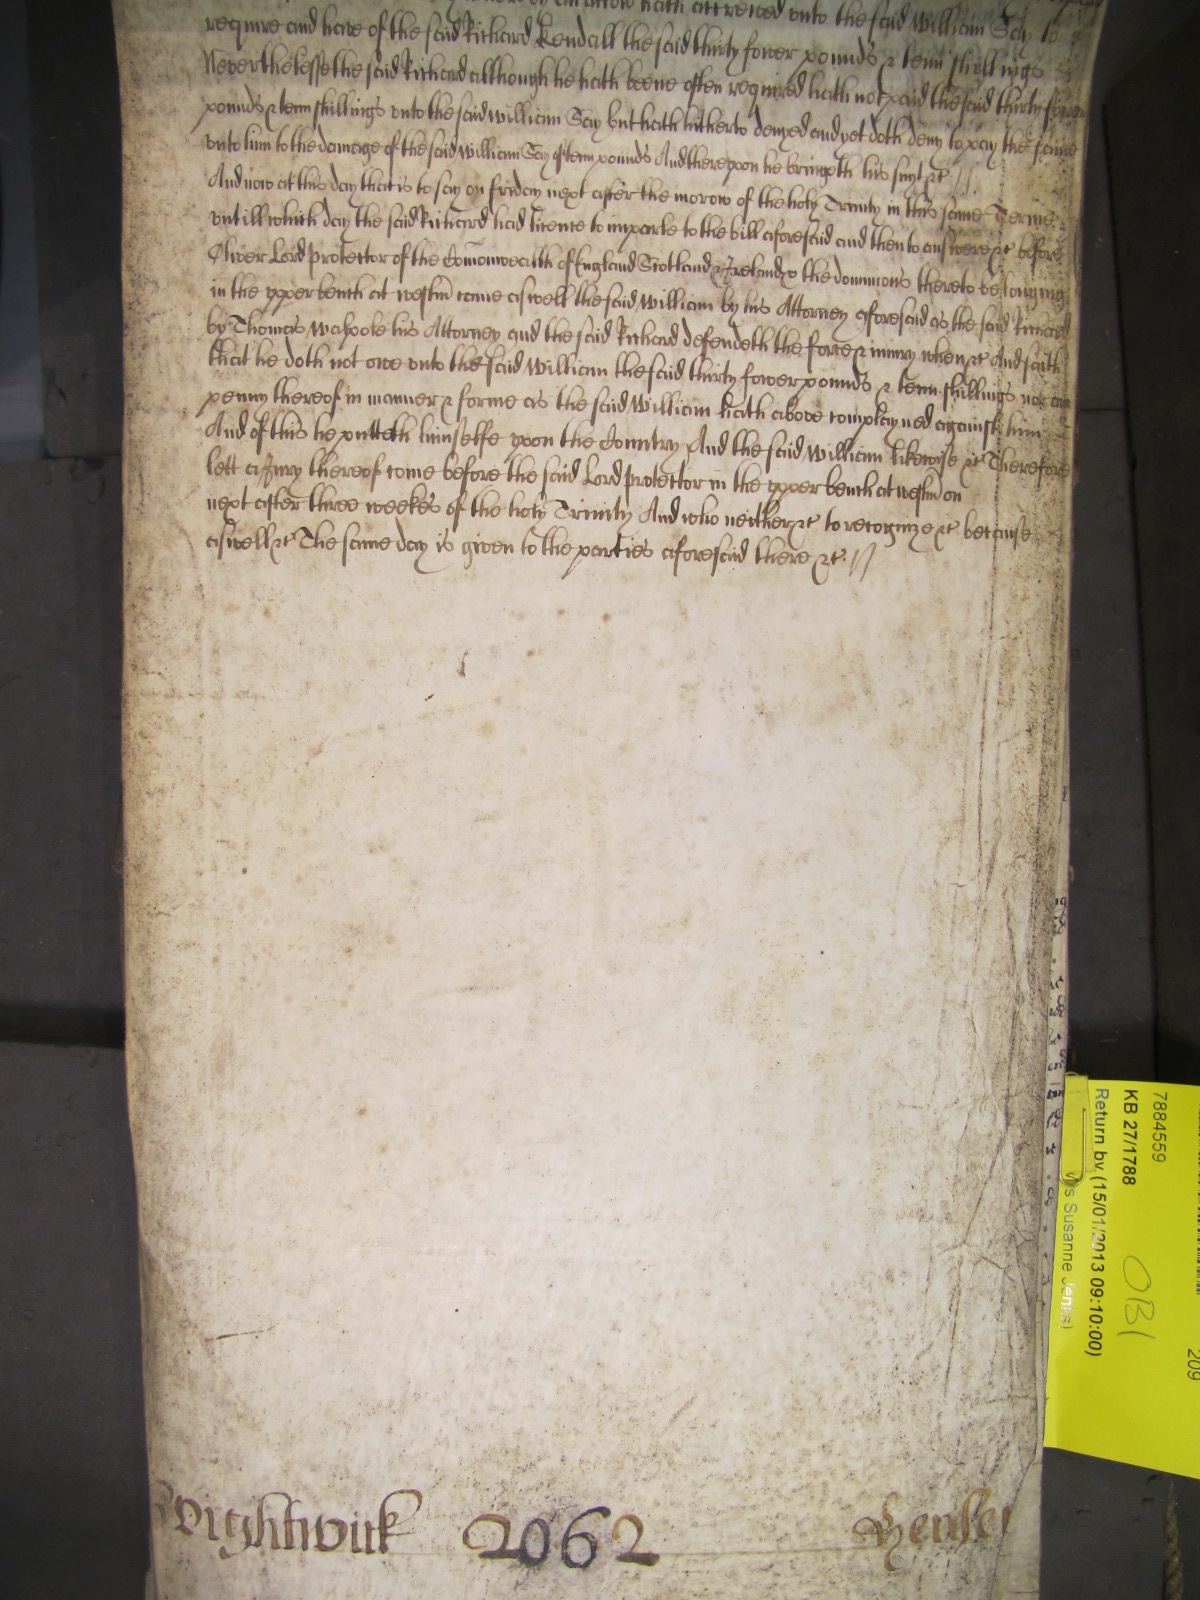 whereby an accon hath accrewed unto the said William Say to
require and have of the said Richard Kendall the said thirty fower pounds & tenn shillings
Neverthelesse the said Richard although he hath beene often required hath not paid the said thirty fower
pounds & tenn shillings unto the said William Say but hath hitherto denyed and yet doth deny to pay the same
unto him to the damage of the said William Say of tenn pounds And thereupon he bringeth his suyt &c //
And now at this day that is to say on friday next after the morow of the holy Trinity in this same Terme
untill which day the said Richard had licence to imparle to the bill aforesaid and then to answere &c before
Oliver Lord Protector of the Comonwealth of England Scotland & Ireland & the dominions thereto belonging
in the upper bench at westm came aswell the said William by his Attorney aforesaid as the said Richard
by Thomas Walpole his Attorney and the said Richard defendeth the force & iniury when &c And saith
that he doth not owe unto the said William the said thirty fower pounds & tenn shillings nor any
penny thereof in manner & forme as the said William hath above complayned against him
And of this he putteth himselfe upon the Country And the said William likewise &c Therefore
lett a Jury thereof come before the said Lord Protector in the upper bench at westm on
next after three weekes of the holy Trinity And who neither &c to recognize &c because
aswell &c The same day is given to the parties aforesaid there &c //
Wightwick 2062 Henley
7884559
KB 27/1788
OB1
Return by (15/01/2013 09:10:00)
s Susanne Jenks)
209